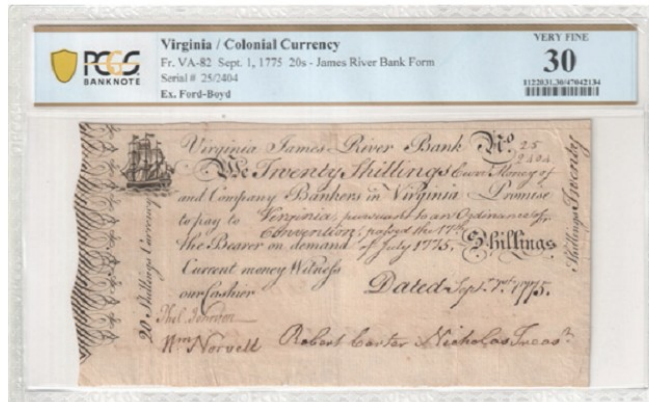 PCGS
BANKNOTE
Virginia / Colonial Currency
Fr. VA-82 Sept. 1, 1775 20s - James River Bank Form
Serial # 25/2404
Ex. Ford-Boyd
VERY FINE
30
Virginia James River Bank No. 25
2404
We Twenty Shillings Curr. Money of
and Company Bankers in Virginia Promise
to pay to Virginia, pursuant to an Ordinance of
Convention, passed the 17th
the Bearer on demand of July 1775. Shillings
Current money Witness
our Cashier Dated Sept. 1775.
20 Shillings Currency
Shillings Twenty
Wm Norvell Robert Carter Nicholas Treasr.